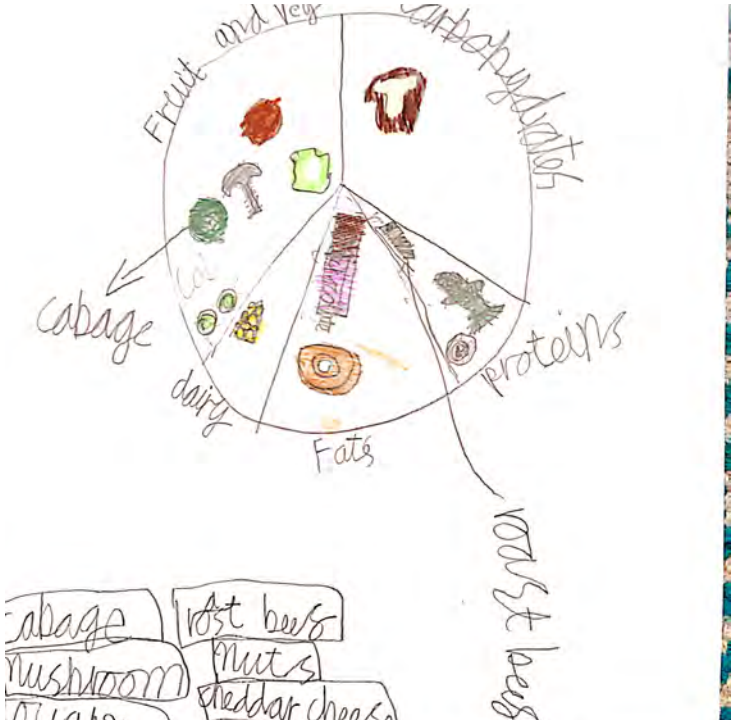 Fruit and veg
carbohydrates
cabage
dairy
Fats
proteins
roast beef
cabage
rost beef
mushroom
nuts
cheddar cheese